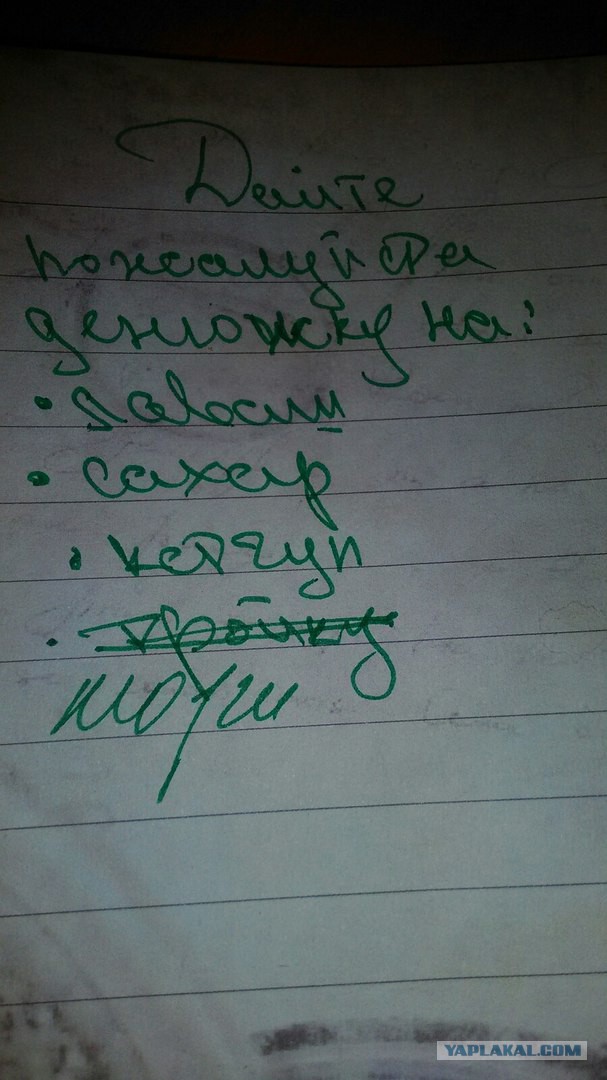 Дайте
пожалуйста
денюжку на:
• лаваш
• сахар
• кетчуп
• тройку
YAPLAKAL.COM